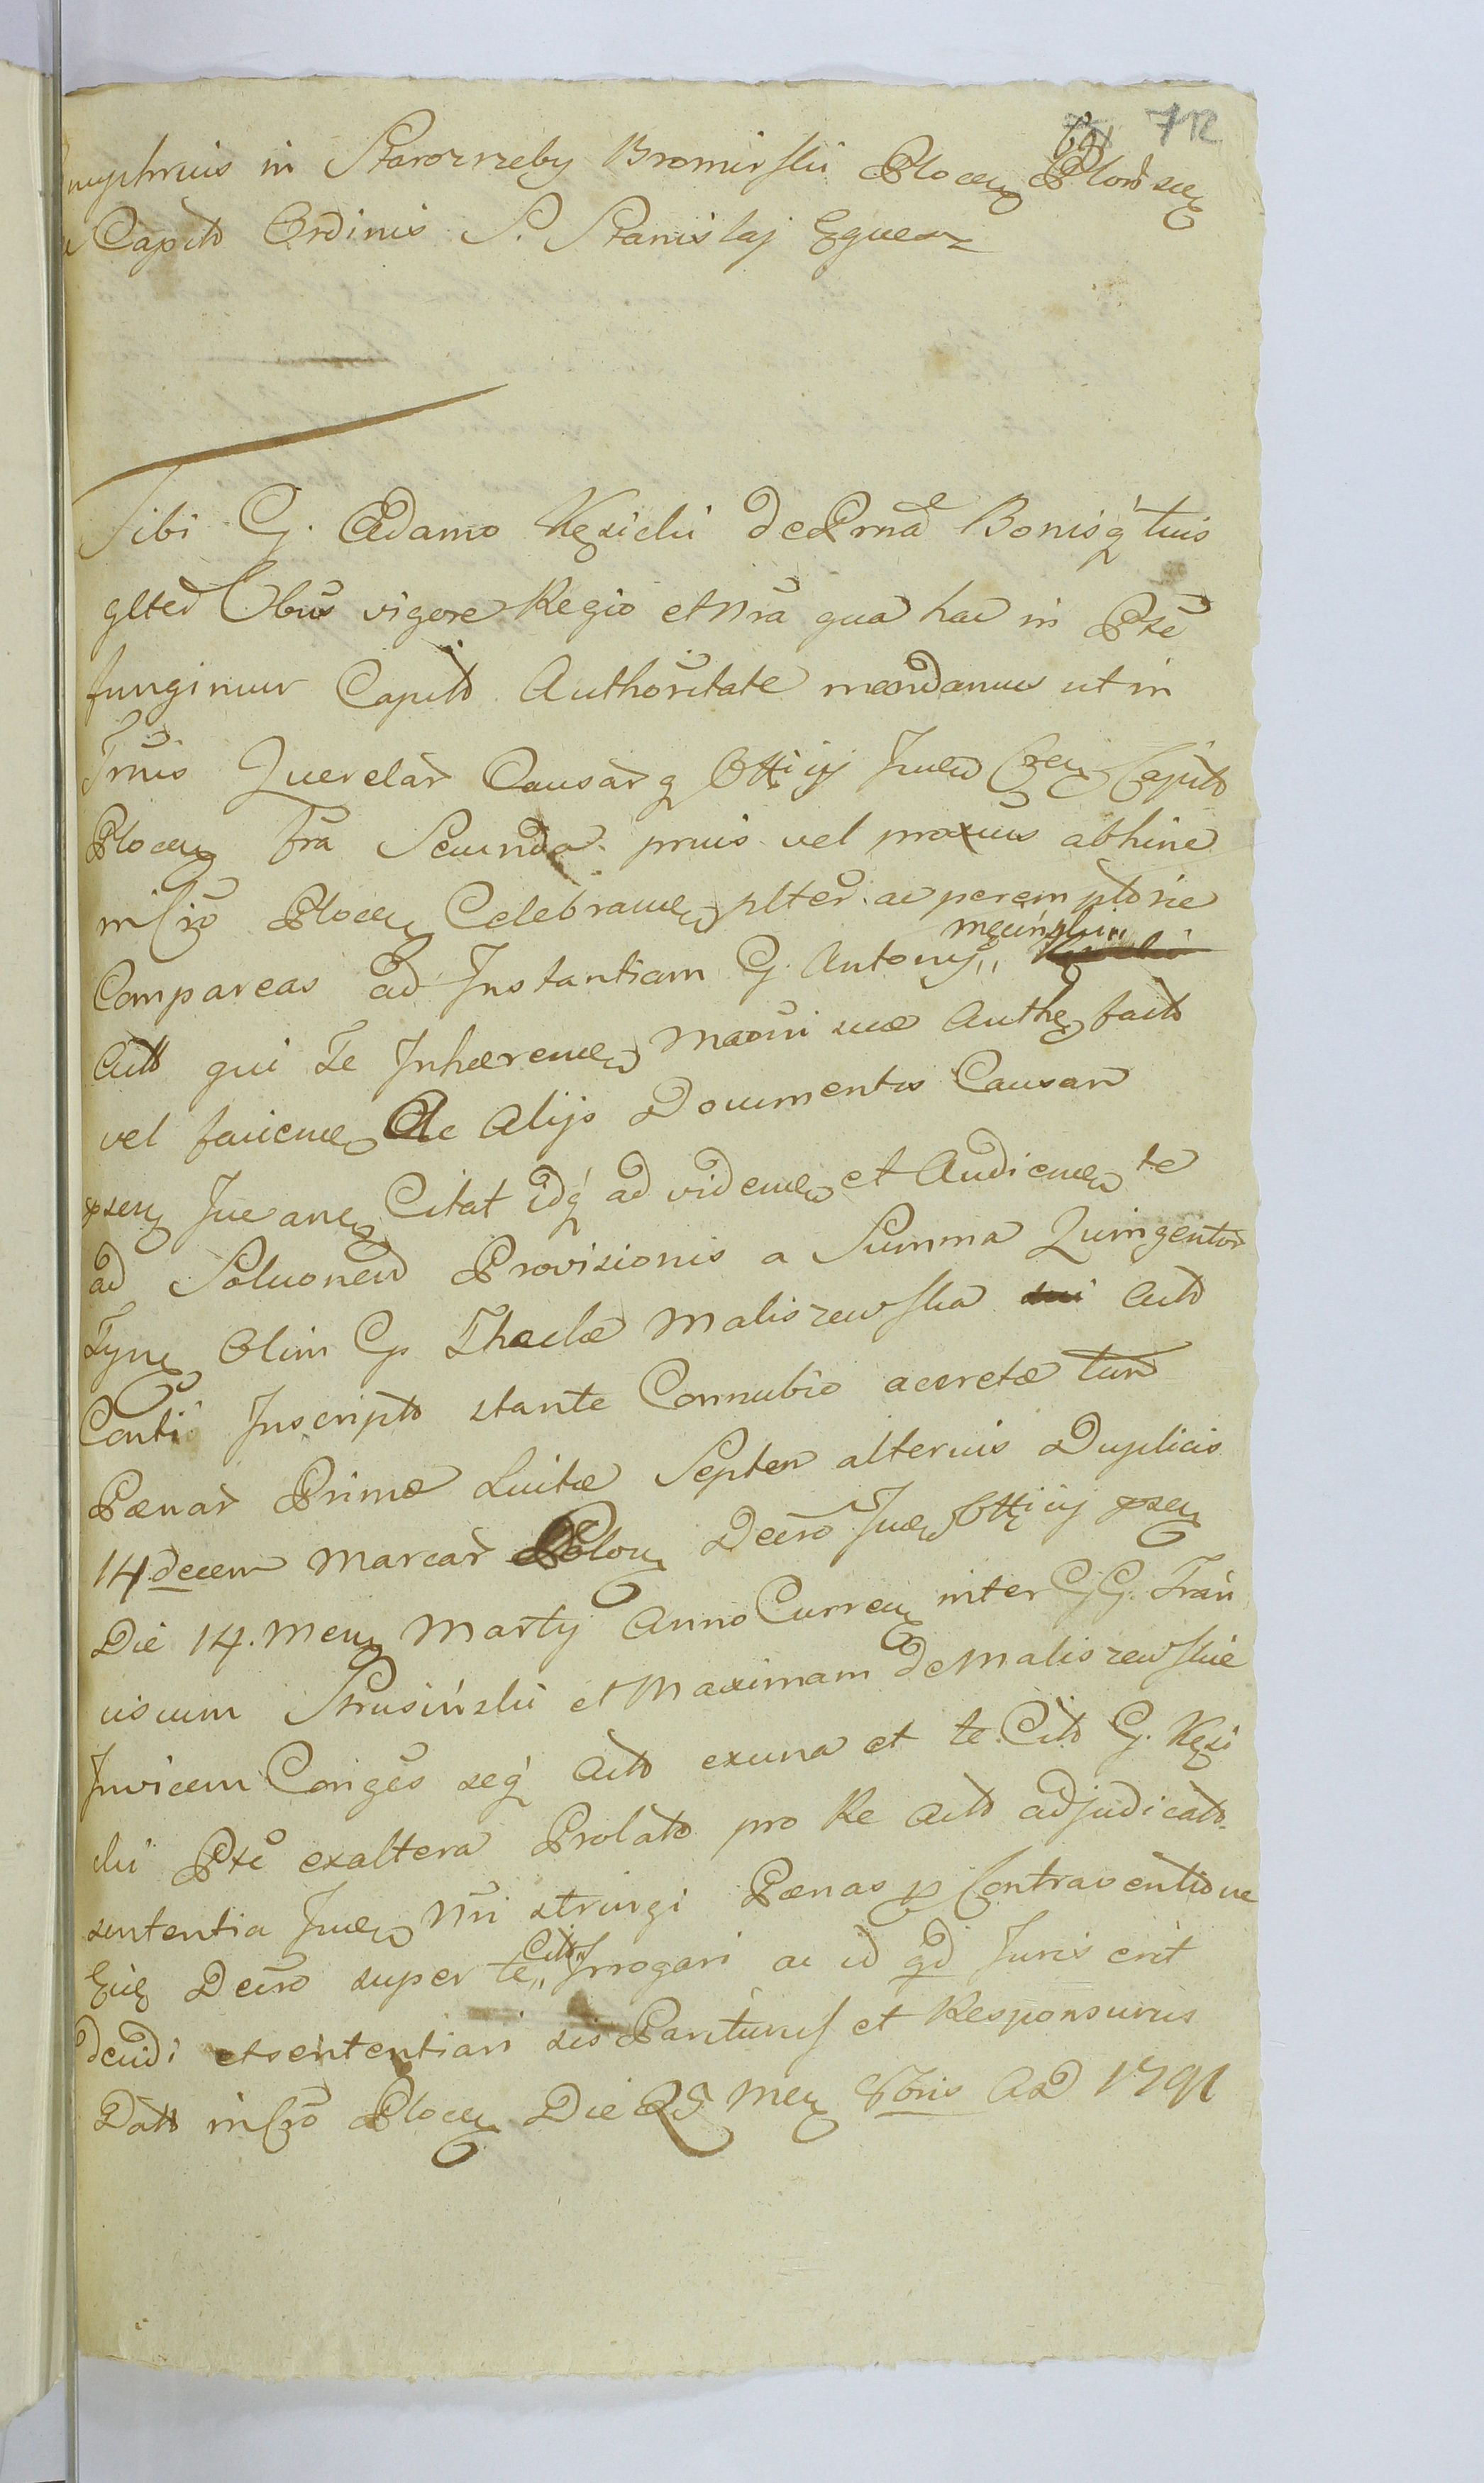 712
nuphrius in Starorzeby Bromirskii Plocen Plonscen
Capito Ordinis S. Stanislaj Eques
Tibi G. Adamo Kęsicki de Prna Bonisq tuis
glted Obus vigore Regio et nra qua hac in Pte
fungimur Capito Authoritate mandamus ut in
Trnis Querelar Causarq Offij Juen Cren Capito
Plocen fra Secunda pruis vel proxims abhinc
in Cro Plocen Celebrauen plter ac peremptorie
Compareas ad Instantiam G. Antonij męcińskii
Actt qui Te Inhærenen Mactini suæ Authen facto
vel faciene Ac Alijs Documentis Causan
psen Citat idq ad videnen et Audienen te
ad Soluonem Provisionis a Summa Quingentor
Tynf Olim G Theclæ Maliszewska Acto
Conti Inscripto stante Connubio accretæ tum
Pænar Primæ Luitæ Septem alterius Duplicis
14 decem Marcar Polon Decro Juen Offij psen
Die 14. Men Martij Anno Curren inter GG. Fran
ciscum Strusiński et Maximam de Maliszewskie
Invicem Conges seq Acto ex una et te Cito G. Kęsi
cki Pte ex altera Prolato pro Re Acto adjudicato
sententia Juen Nri stringi Pænas p Contraventione
Ejus Decro super te Cito Irrogari ac id qd Juris erit
decidi et sententiari sis Pariturus et Responsurus
Datt in Cro Plocen Die 25 Men 8bris AD 1791